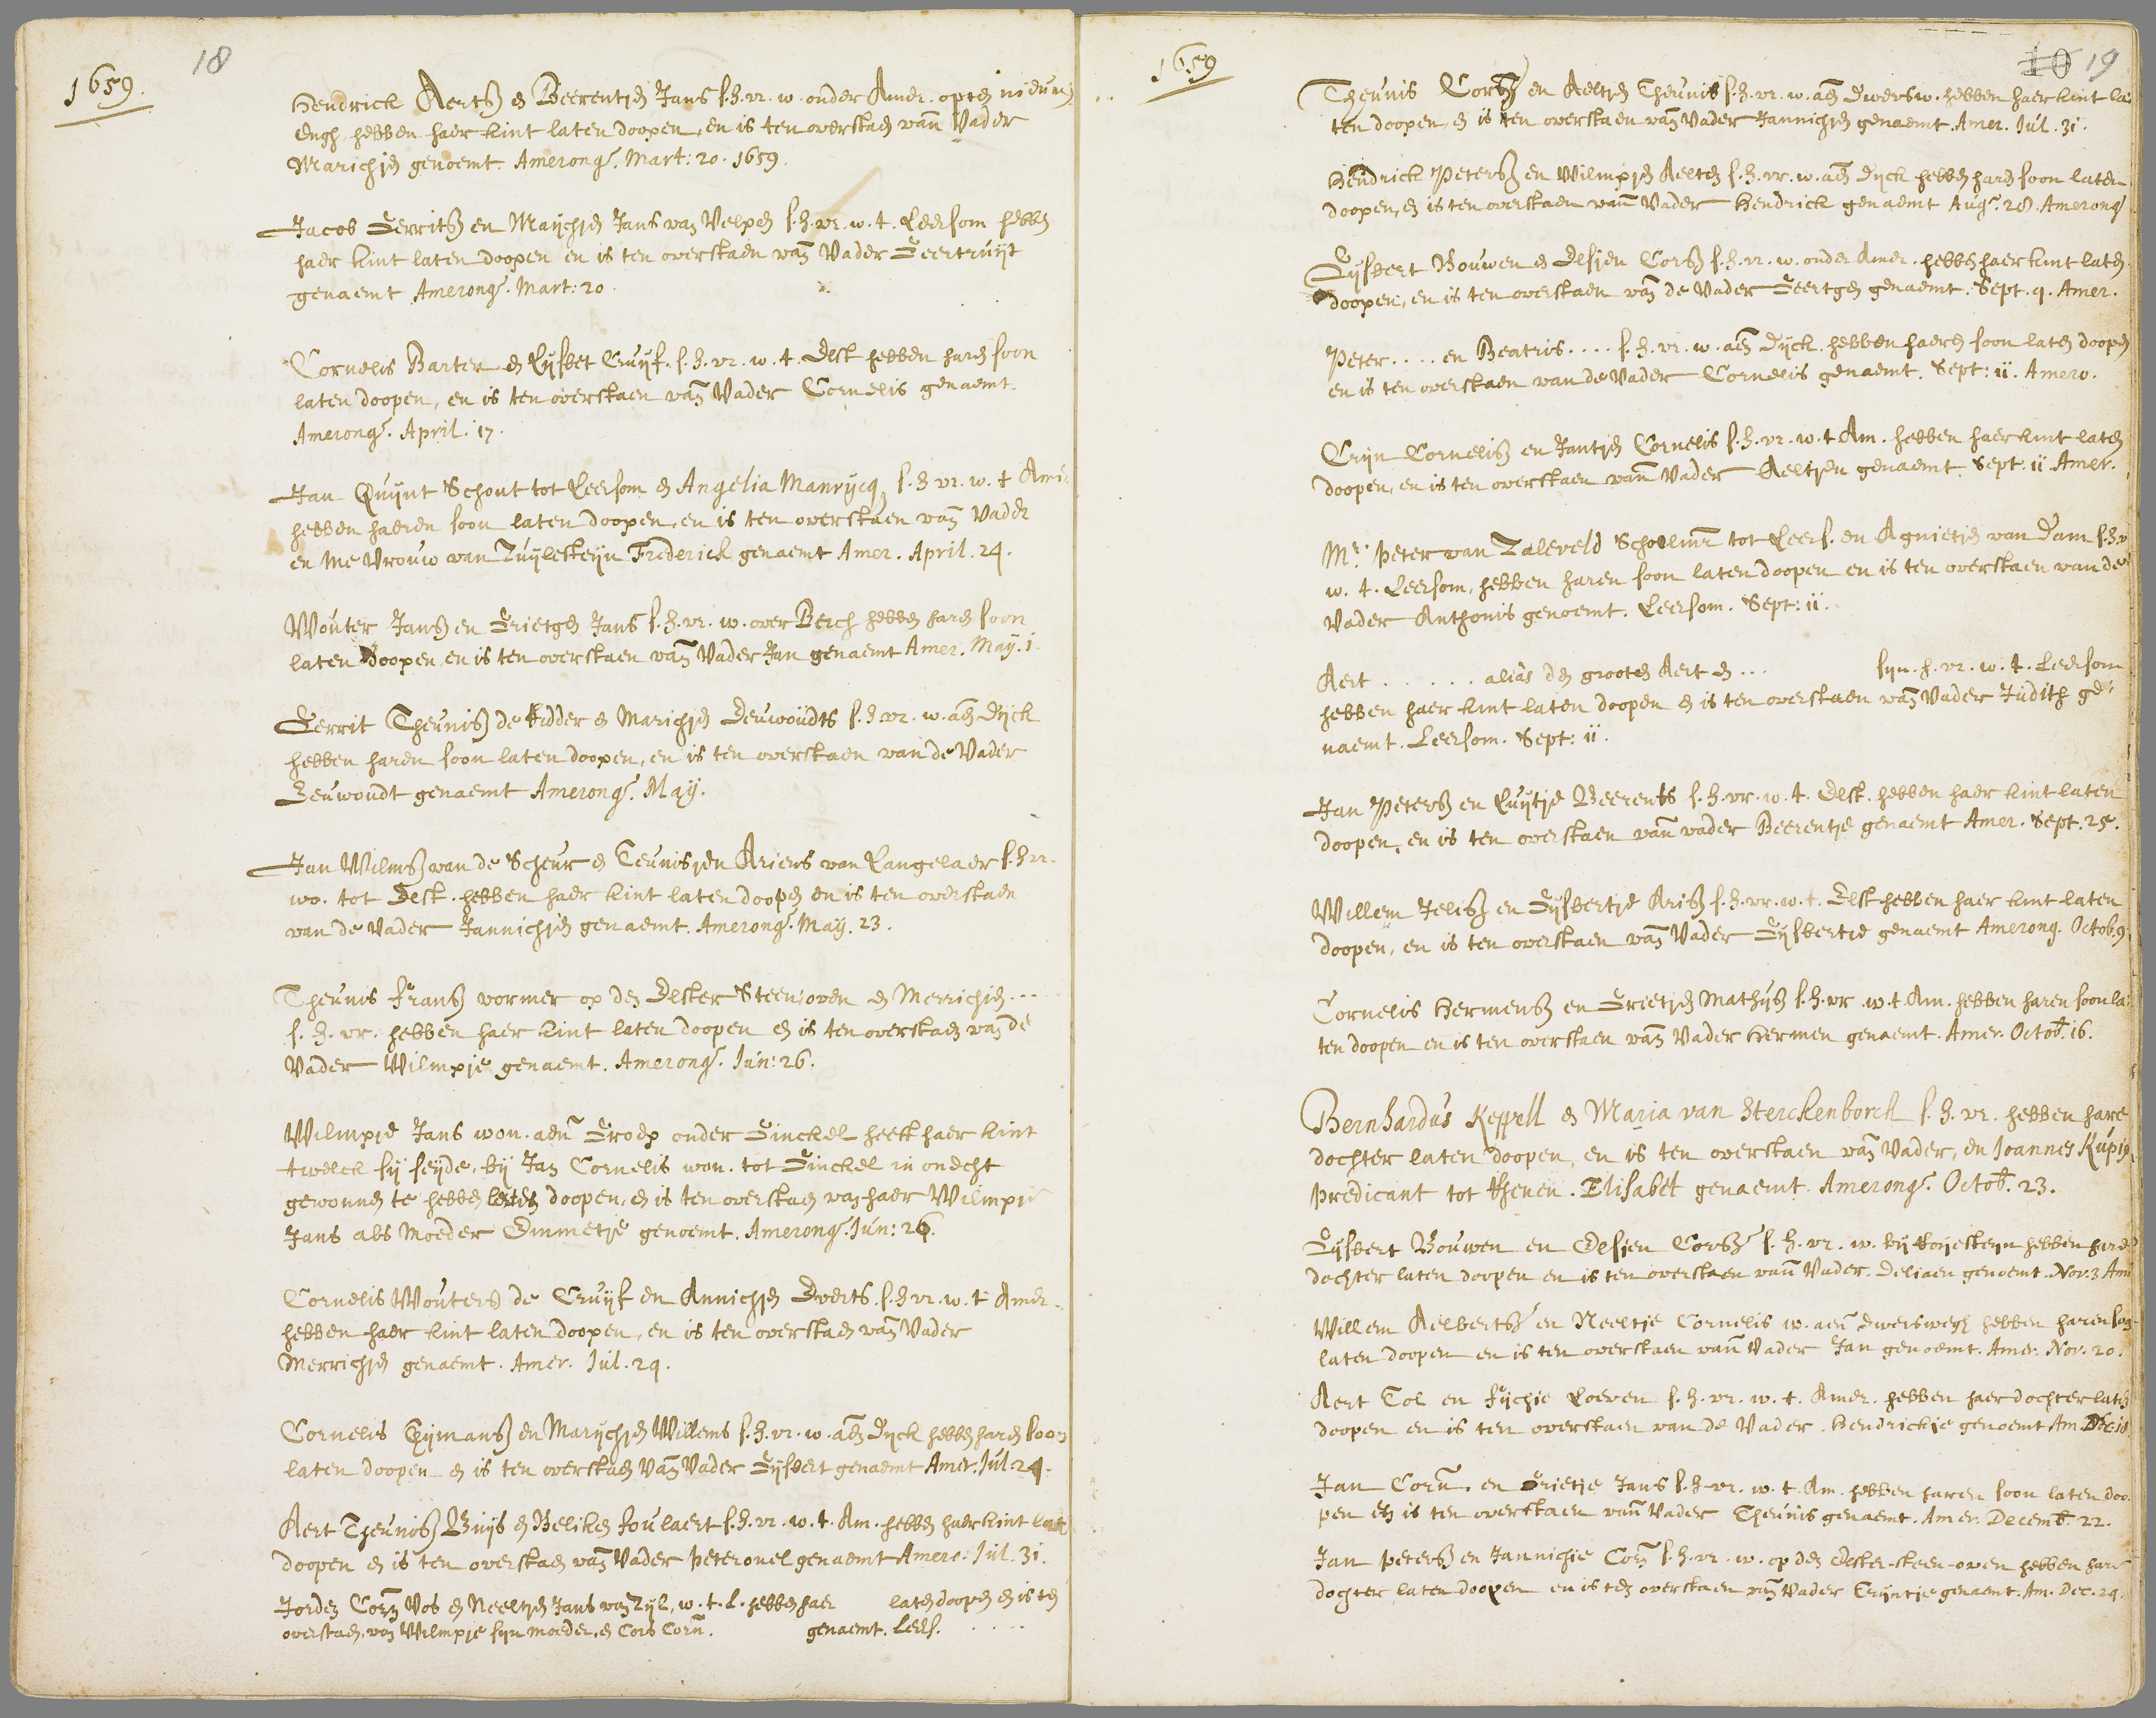 18
1659.
Hendrick Aertsz en Beerentjen Jans s. h. vr. w. onder Amer. opten
Engh. hebben haer kint laten doopen, en is ten overstaen vande Vader
Marichjen genoemt. Amerong. Mart: 20. 1659.
Jacob Gerritsz en Maijchjen Jans van Velpen s. h. vr. w. t. Leersom hebben
haer kint laten doopen en is ten overstaen van Vader Geertruijt
genaemt Amerong. Mart: 20.
Cornelis Barten en Lijsbet Cruijf. s. h. vr. w. t. Elst hebben haren soon
laten doopen, en is ten overstaen van Vader Cornelis genaemt.
Amerong. April. 17.
Jan Quijnt Schout tot Leersom en Angelia Manrijcq s. h. vr. w. t Am:
hebben haeren soon laten doopen, en is ten overstaen van Vader
en Me Vrouw van Zuijlesteijn Frederick genaemt Amer. April. 24.
Wouter Jansz en Grietgen Jans s. h. vr. w. over Berch hebben haren soon
laten doopen, en is ten overstaen van Vader Jan genaemt Amer. May. 1.
Gerrit Theunisz de Ridder en Marichjen Deuwoudts s. h. vr. w. aen Dijck
hebben haren soon laten doopen, en is ten overstaen van de Vader
Deuwoudt genaemt Amerong. May.
Jan Wilmsz van de Scheur en Teunisjen Ariens van Langelaer s. h. vr.
wo. tot Elst. hebben haer kint laten doopen en is ten overstaen
van de Vader Jannichjen genaemt. Amerong. May. 23.
Theunis Fransz vormer op den Elster Steen oven en Merrichjen ...
s. h. vr. hebben haer kint laten doopen en is ten overstaen van de
Vader Wilmpje genaemt. Amerong. Jun: 26.
Wilmpje Jans won. aen Groep onder Ginckel heeft haer kint
twelck sij seijde, bij Jan Cornelis won. tot Ginckel in onecht
gewonnen te hebben laten doopen, en is ten overstaen van haer Wilmpje
Jans als Moeder Emmetje genoemt. Amerong. Jun: 26.
Cornelis Wouters de Cruijf en Annichjen Everts. s. h. vr. w. t Amer.
hebben haer kint laten doopen, en is ten overstaen van Vader
Merrichjen genaemt. Amer. Jul. 29.
Cornelis Tijmansz en Marijchjen Willems s. h. vr. w. aen Dijck hebben haren soon
laten doopen en is ten overstaen van Vader Gijsbert genaemt Amer. Jul. 24.
Aert Theunisz Buijs en Beliken Foulaert s. h. vr. w. t. Am. hebben haer kint laten
doopen en is ten overstaen van Vader Peteronel genaemt Amero. Jul. 31.
Jorden Corn Vos en Neeltjen Jans van Zijl, w. t. L. hebben haer laten doopen en is ten
overstaen, van Wilmpje sijn moeder, en Cors Corn. genaemt. Leers. ....
10 19
1659
Theunis Corsz en Aeltjen Theunis s. h. vr. w. aen Dwersw. hebben haer kint la
ten doopen, en is ten overstaen van Vader Jannichjen genaemt. Amer. Jul. 31.
Hendrick Petersz en Wilmpjen Aelten s. h. vr. w. aen Dijck hebben haren soon laten
doopen, en is ten overstaen vande Vader Hendrick genaemt Aug. 28. Amerong
Gijsbert Bouwen en Elsjen Corsz s. h. vr. w. onder Amer. hebben haer kint laten
doopen, en is ten overstaen van de Vader Geertgen genaemt. Sept. 9. Amer.
Peter .... en Beatris .... s. h. vr. w. aen Dijck. hebben haeren soon laten doopen
en is ten overstaen van de Vader Cornelis genaemt. Sept: 11. Amero.
Crijn Cornelisz en Jantjen Cornelis s. h. vr. w. t Am. hebben haer kint laten
doopen, en is ten overstaen vande Vader Aeltjen genaemt. Sept: 11. Amer.
Mr. Peter van Zaleveld Schoolmr tot Leers. en Agnietjen van Dam s. h. v
w. t. Leersom, hebben haren soon laten doopen en is ten overstaen van de
Vader Anthonis genoemt. Leersom. Sept: 11.
Aert ...... alias den grooten Aert en ... sijn. h. vr. w. t. Leersom
hebben haer kint laten doopen en is ten overstaen van Vader Judith ge-
naemt. Leersom. Sept: 11.
Jan Petersz en Luijtje Beerents s. h. vr. w. t. Elst. hebben haer kint laten
doopen, en is ten overstaen vande vader Beerentje genaemt Amer. Sept. 25.
Willem Jelisz en Gijsbertje Arisz s. h. vr. w. t. Elst hebben haer kint laten
doopen, en is ten overstaen van Vader Gijsbertje genaemt Amerong. Octob. 9.
Cornelis Hermensz en Grietjen Mathijsz s. h. vr. w. t. Am. hebben haren soon la-
ten doopen en is ten overstaen van Vader Hermen genaemt. Amer. Octob. 16.
Bernhardus Keppell en Maria van Sterckenborch s. h. vr. hebben hare
dochter laten doopen, en is ten overstaen van Vader, en Joannes
Predicant tot Rhenen. Elisabet genaemt. Amerong. Octob. 23.
Gijsbert Bouwen en Elsjen Corsz s. h. vr. w. bij hebben hare
dochter laten doopen en is ten overstaen vande Vader. Deliaen genoemt. Nov. 3 Am
Willem Aelbertsz en Neeltje Cornelis w. aen Dwerswegh hebben haren soon
laten doopen en is ten overstaen vande Vader Jan genoemt. Amer. Nov. 20.
Aert Tol en Fijchje Loeven s. h. vr. w. t. Amer. hebben haer dochter laten
doopen en is ten overstaen van de Vader. Hendrickje genoemt Am. Dec. 18
Jan Corn. en Grietje Jans s. h. vr. w. t. Am. hebben haren soon laten doo
pen en is ten overstaen vande Vader Theunis genaemt. Amer. Decemb. 22.
Jan Petersz en Jannichje Corn s. h. vr. w. op den Elster-steen-oven hebben hare
dochter laten doopen en is ten overstaen van Vader Crijntje genaemt. Am. Dec. 29.